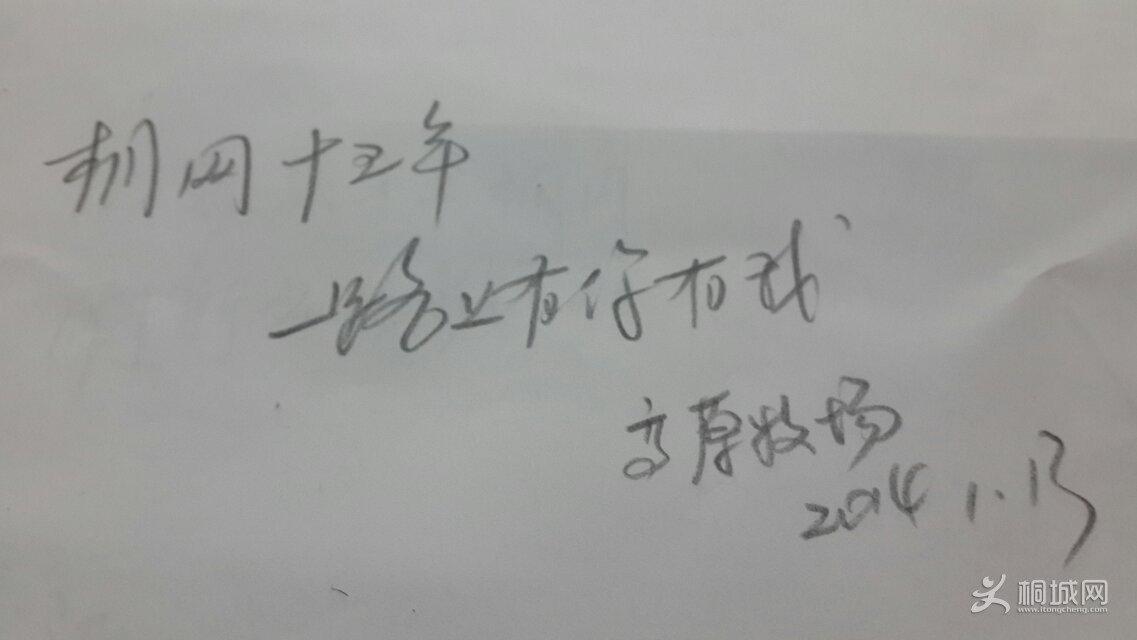 桐网十五年
一路上有你有我
高原牧场
2014.1.13
桐城网
www.itongcheng.com